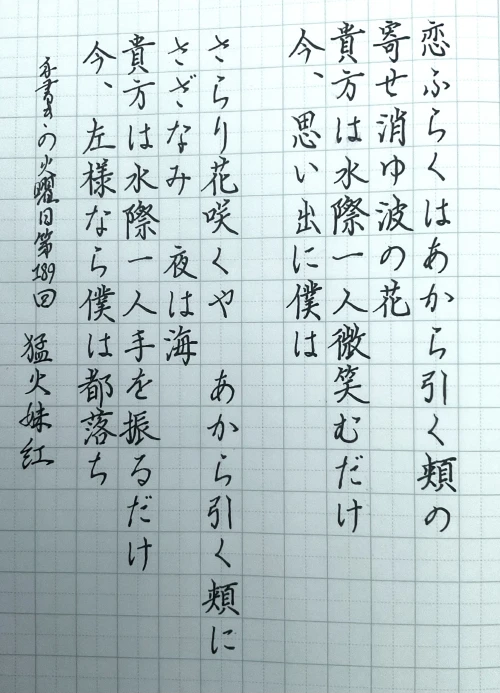 恋ふらくはあから引く頬の
寄せ消ゆ波の花
貴方は水際一人微笑むだけ
今、思い出に僕は
さらり花咲くや　あから引く頬に
さざなみ　夜は海
貴方は水際一人手を振るだけ
今、左様なら僕は都落ち
手書きの火曜日第189回　猛火妹紅